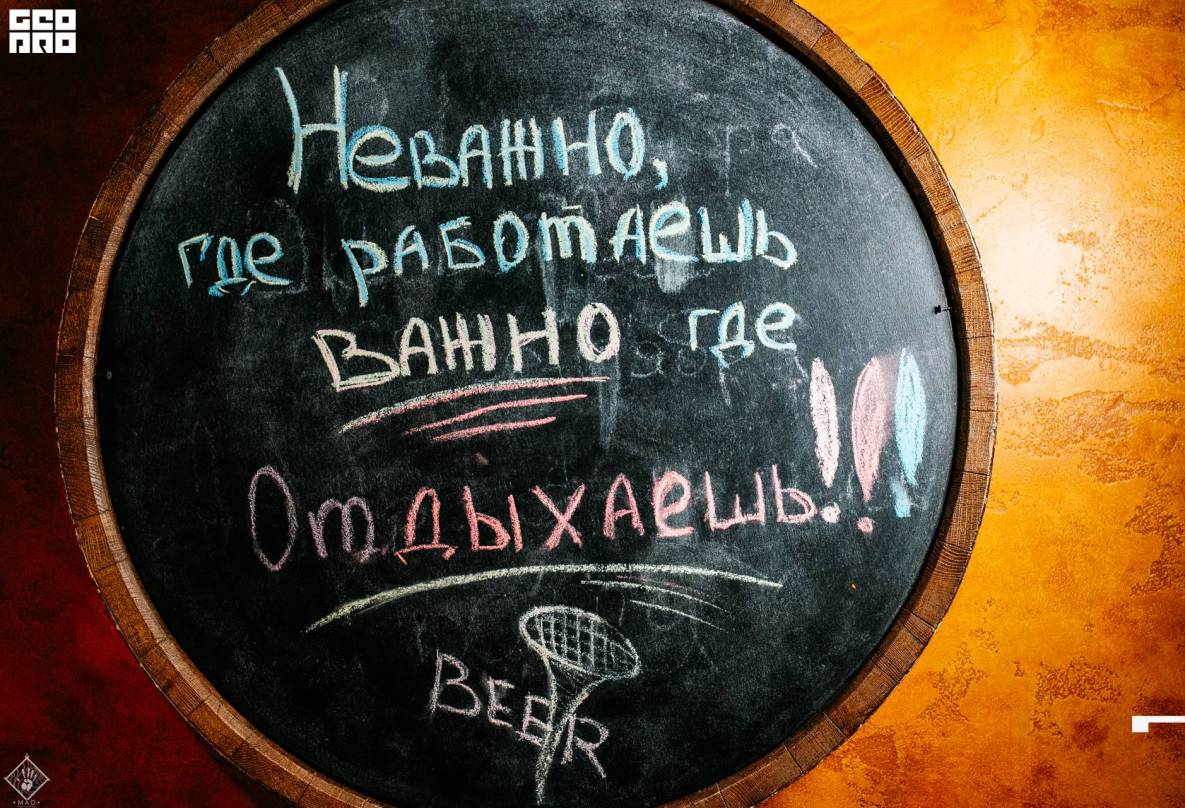 GEO
PRO
Неважно,
где работаешь
важно где
Отдыхаешь!!!
BEER
МАО